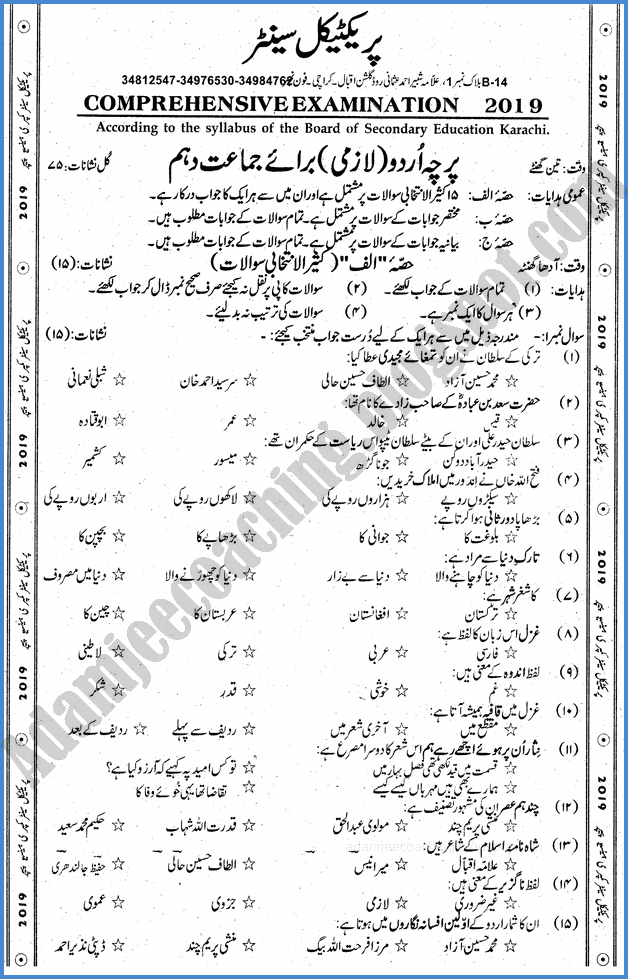 پریکٹیکل سینٹر
B-14 بلاک نمبر 1، علامہ شبیر احمد عثمانی روڈ گلشن اقبال۔ کراچی۔ فون نمبر 34984762-34976530-34812547
COMPREHENSIVE EXAMINATION 2019
According to the syllabus of the Board of Secondary Education Karachi.
وقت: تین گھنٹے پرچہ اُردو (لازمی) برائے جماعت دہم کل نشانات: ۷۵
عمومی ہدایات: حصّہ الف: ۱۵ کثیر الانتخابی سوالات پر مشتمل ہے اور ان میں سے ہر ایک کا جواب درکار ہے۔
حصّہ ب: مختصر جوابات کے سوالات پر مشتمل ہے۔ تمام سوالات کے جوابات مطلوب ہیں۔
حصّہ ج: بیانیہ جوابات کے سوالات پر مشتمل ہے۔ تمام سوالات کے جوابات مطلوب ہیں۔
وقت: آدھا گھنٹہ حصّہ "الف" (کثیر الانتخابی سوالات) نشانات: (۱۵)
ہدایات: (۱) تمام سوالات کے جواب لکھئے۔ (۲) سوالات کاپی پر نقل نہ کیجئے صرف صحیح نمبر ڈال کر جواب لکھئے۔
(۳) ہر سوال کا ایک نمبر ہے۔ (۴) سوالات کی ترتیب نہ بدلیئے۔
سوال نمبر۱:- مندرجہ ذیل میں سے ہر ایک کے لیے دُرست جواب منتخب کیجئے:- نشانات: (۱۵)
(۱) ترکی کے سلطان نے ان کو تمغائے مجیدی عطا کیا:
☆ محمد حسین آزاد ☆ الطاف حسین حالی ☆ سر سید احمد خان ☆ شبلی نعمانی
(۲) حضرت سعد بن عبادہؓ کے صاحب زادے کا نام تھا:
☆ قیس ☆ خالد ☆ عمر ☆ ابو قتادہ
(۳) سلطان حیدر علی اور ان کے بیٹے سلطان ٹیپو اس ریاست کے حکمران تھے:
☆ حیدرآباد دوکن ☆ جونا گڑھ ☆ میسور ☆ کشمیر
(۴) فتح اللہ خاں نے اندور میں املاک خریدیں:
☆ سیکڑوں روپے ☆ ہزاروں روپے کی ☆ لاکھوں روپے کی ☆ اربوں روپے کی
(۵) بڑھاپا دور ثانی ہوا کرتا ہے:
☆ بلوغت کا ☆ جوانی کا ☆ بڑھاپے کا ☆ بچپن کا
(۶) تارک دنیا سے مراد ہے:
☆ دنیا کو چاہنے والا ☆ دنیا سے بے زار ☆ دنیا کو چھوڑنے والا ☆ دنیا میں مصروف
(۷) کاشغر شہر ہے:
☆ ترکستان ☆ افغانستان ☆ عربستان کا ☆ چین کا
(۸) غزل اس زبان کا لفظ ہے:
☆ فارسی ☆ عربی ☆ ترکی ☆ لاطینی
(۹) لفظ اندوہ کے معنی ہیں:
☆ غم ☆ خوشی ☆ قدر ☆ شکر
(۱۰) غزل میں قافیہ ہمیشہ آتا ہے:
☆ مقطع میں ☆ آخری شعر میں ☆ ردیف سے پہلے ☆ ردیف کے بعد
(۱۱) نثار اُن پر ہوئے اچھے رہے ہم اس شعر کا دوسرا مصرع ہے:
☆ قسمت میں قید لکھی تھی فصل بہار میں ☆ تو کس امید پہ کہیے کہ آرزو کیا ہے؟
☆ ہمارے بھی ہیں مہرباں کیسے کیسے ☆ تقاضا تھا یہی خوئے وفا کا
(۱۲) چند ہم عصر ان کی مشہور تصنیف ہے:
☆ منشی پریم چند ☆ مولوی عبدالحق ☆ قدرت اللہ شہاب ☆ حکیم محمد سعید
(۱۳) شاہ نامۂ اسلام کے شاعر ہیں:
☆ علامہ اقبال ☆ میر انیس ☆ الطاف حسین حالی ☆ حفیظ جالندھری
(۱۴) لفظ ناگزیر کے معنی ہیں:
☆ غیر ضروری ☆ لازمی ☆ جزوی ☆ عمومی
(۱۵) ان کا شمار اردو کے اوّلین افسانہ نگاروں میں ہوتا ہے:
☆ محمد حسین آزاد ☆ مرزا فرحت اللہ بیگ ☆ منشی پریم چند ☆ ڈپٹی نذیر احمد
2019
2019
2019
2019
2019
2019
2019
2019
Adamjeecoaching.blogspot.com